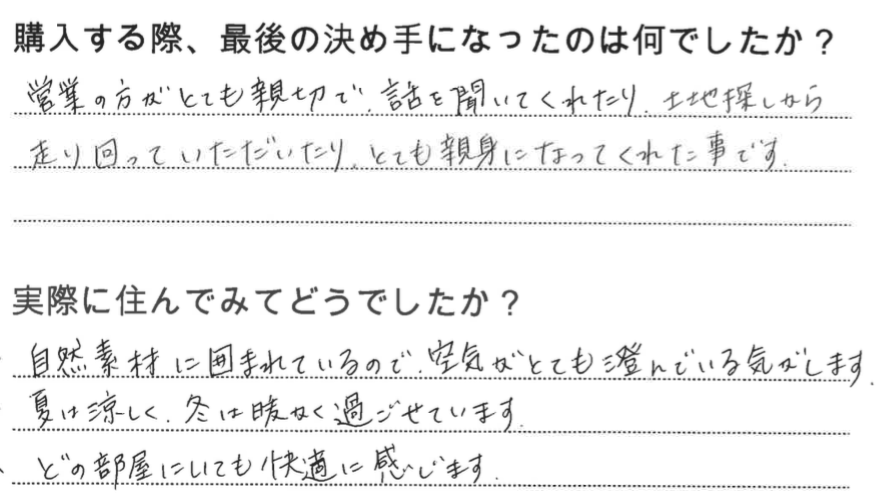 購入する際、最後の決め手になったのは何でしたか？
営業の方がとても親切で、話を聞いてくれたり、土地探しから
走り回っていただいたり、とても親身になってくれた事です。
実際に住んでみてどうでしたか？
自然素材に囲まれているので、空気がとても澄んでいる気がします。
夏は涼しく、冬は暖かく過ごせています。
どの部屋にいても快適に感じます。